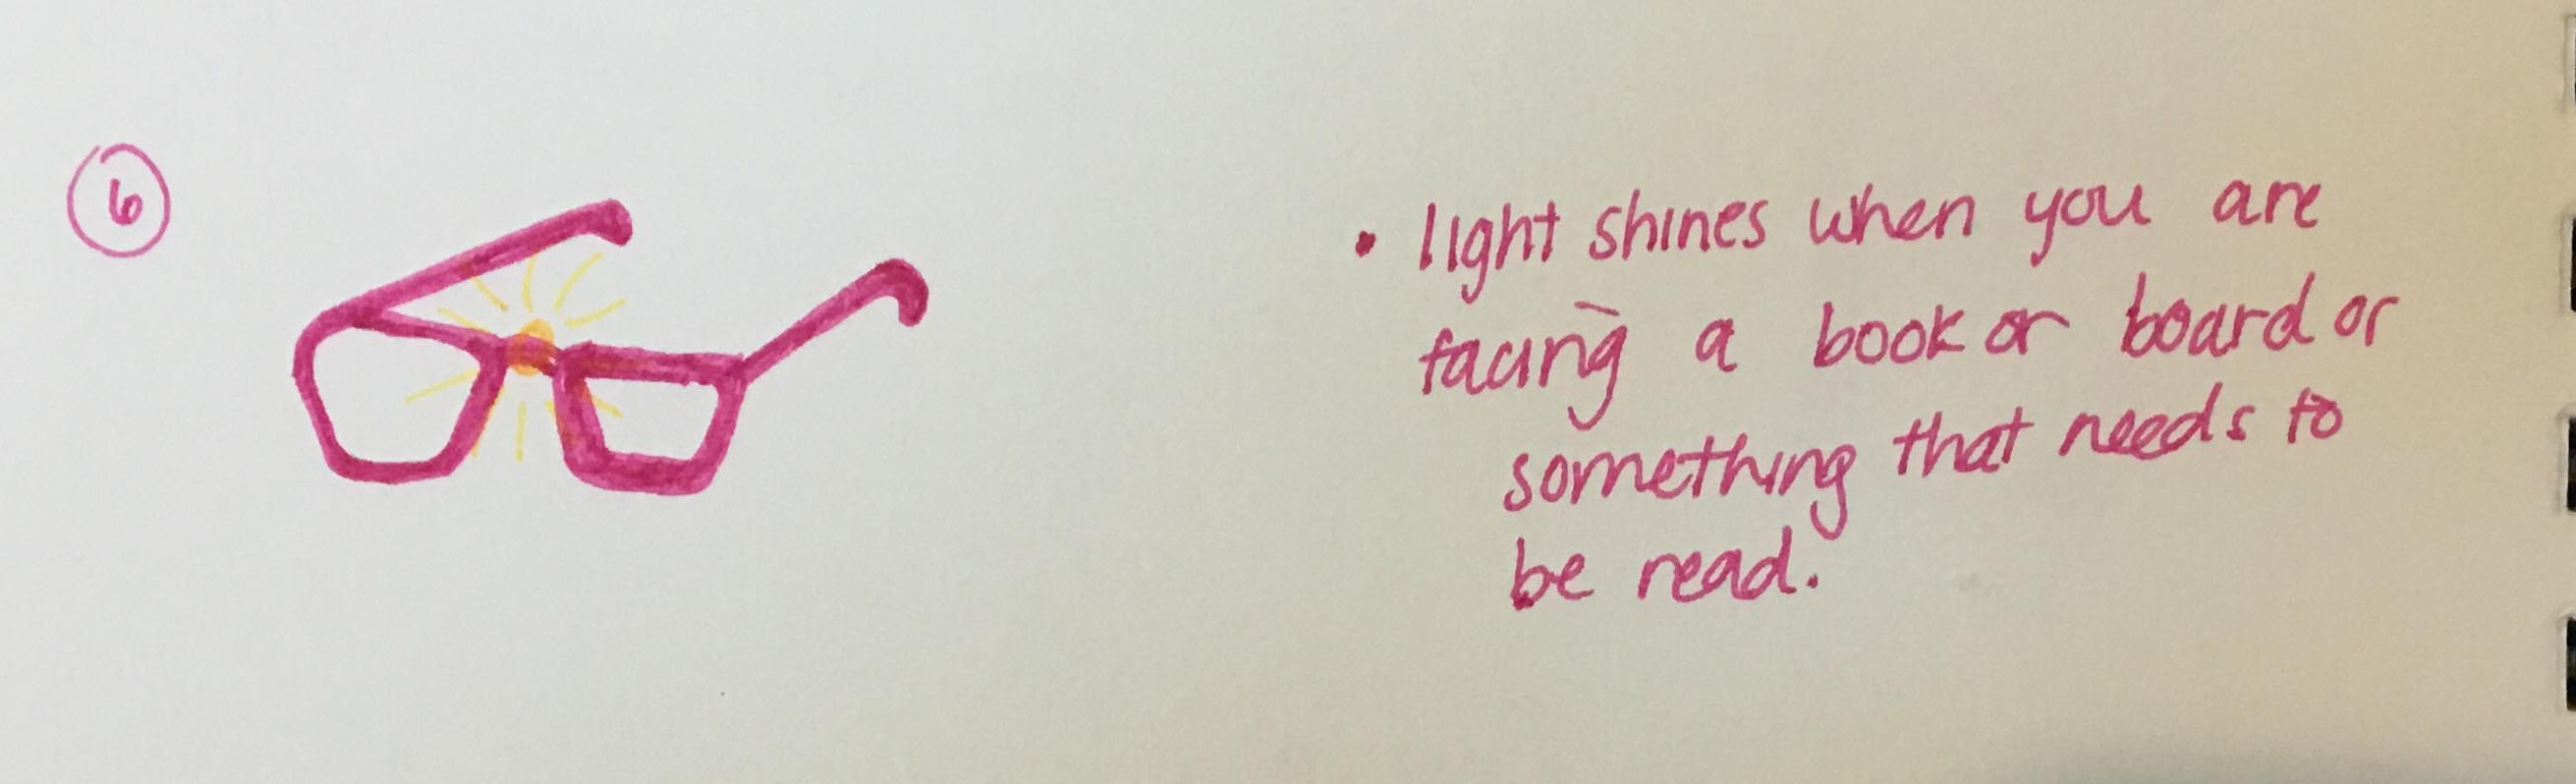 6
• light shines when you are
facing a book or board or
something that needs to
be read.